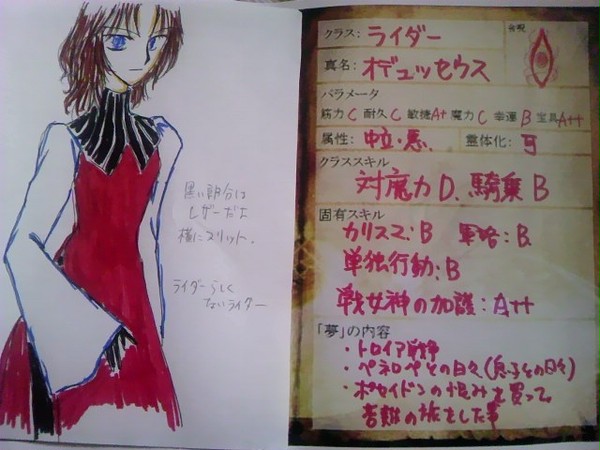 黒い部分は
レザーだよ
横にスリット。
ライダーらしく
ないライダー
クラス: ライダー
令呪
真名: オデュッセウス
パラメータ
筋力C 耐久C 敏捷A+ 魔力C 幸運B 宝具A++
属性: 中立・悪 霊体化: 可
クラススキル
対魔力D、騎乗B
固有スキル
カリスマ:B 軍略:B
単独行動:B
戦女神の加護:A++
「夢」の内容
・トロイア戦争
・ペネロペとの日々(息子との日々)
・ポセイドンの恨みを買って
苦難の旅をした事